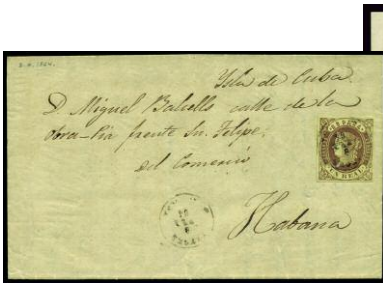 Isla de Cuba
D. Miguel Balcells calle de la
obra-Pia frente Sn. Felipe.
del Comercio
Habana
UN REAL